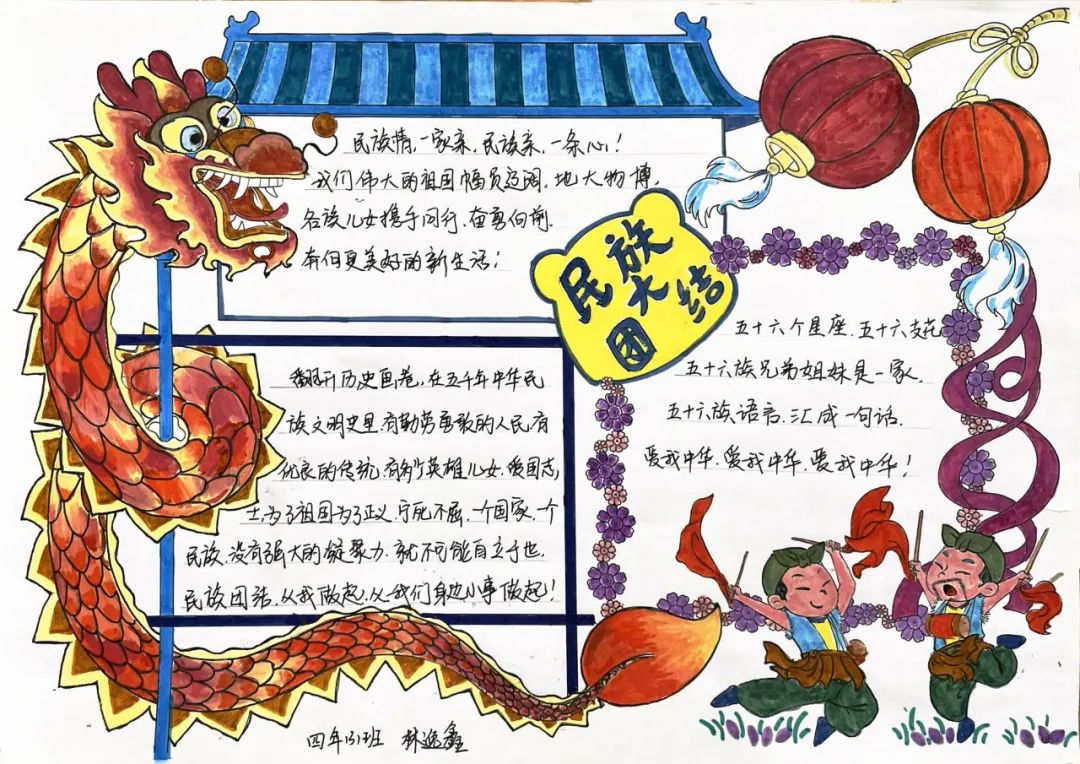 民族情,一家亲,民族亲,一条心!
我们伟大的祖国幅员辽阔,地大物博,
各族儿女携手同行,奋勇向前,
奔向更美好的新生活!
民族
大
团结
翻开历史画卷,在五千年中华民
族文明史里,有勤劳勇敢的人民,有
优良的传统,有多少英雄儿女,爱国志
士,为了祖国为了正义,宁死不屈,一个国家,一个
民族,没有强大的凝聚力,就不可能自立于世,
民族团结,从我做起,从我们身边小事做起!
五十六个星座,五十六支花
五十六族兄弟姐妹是一家,
五十六族语言,汇成一句话,
爱我中华,爱我中华,爱我中华!
四年(3)班 林逸鑫